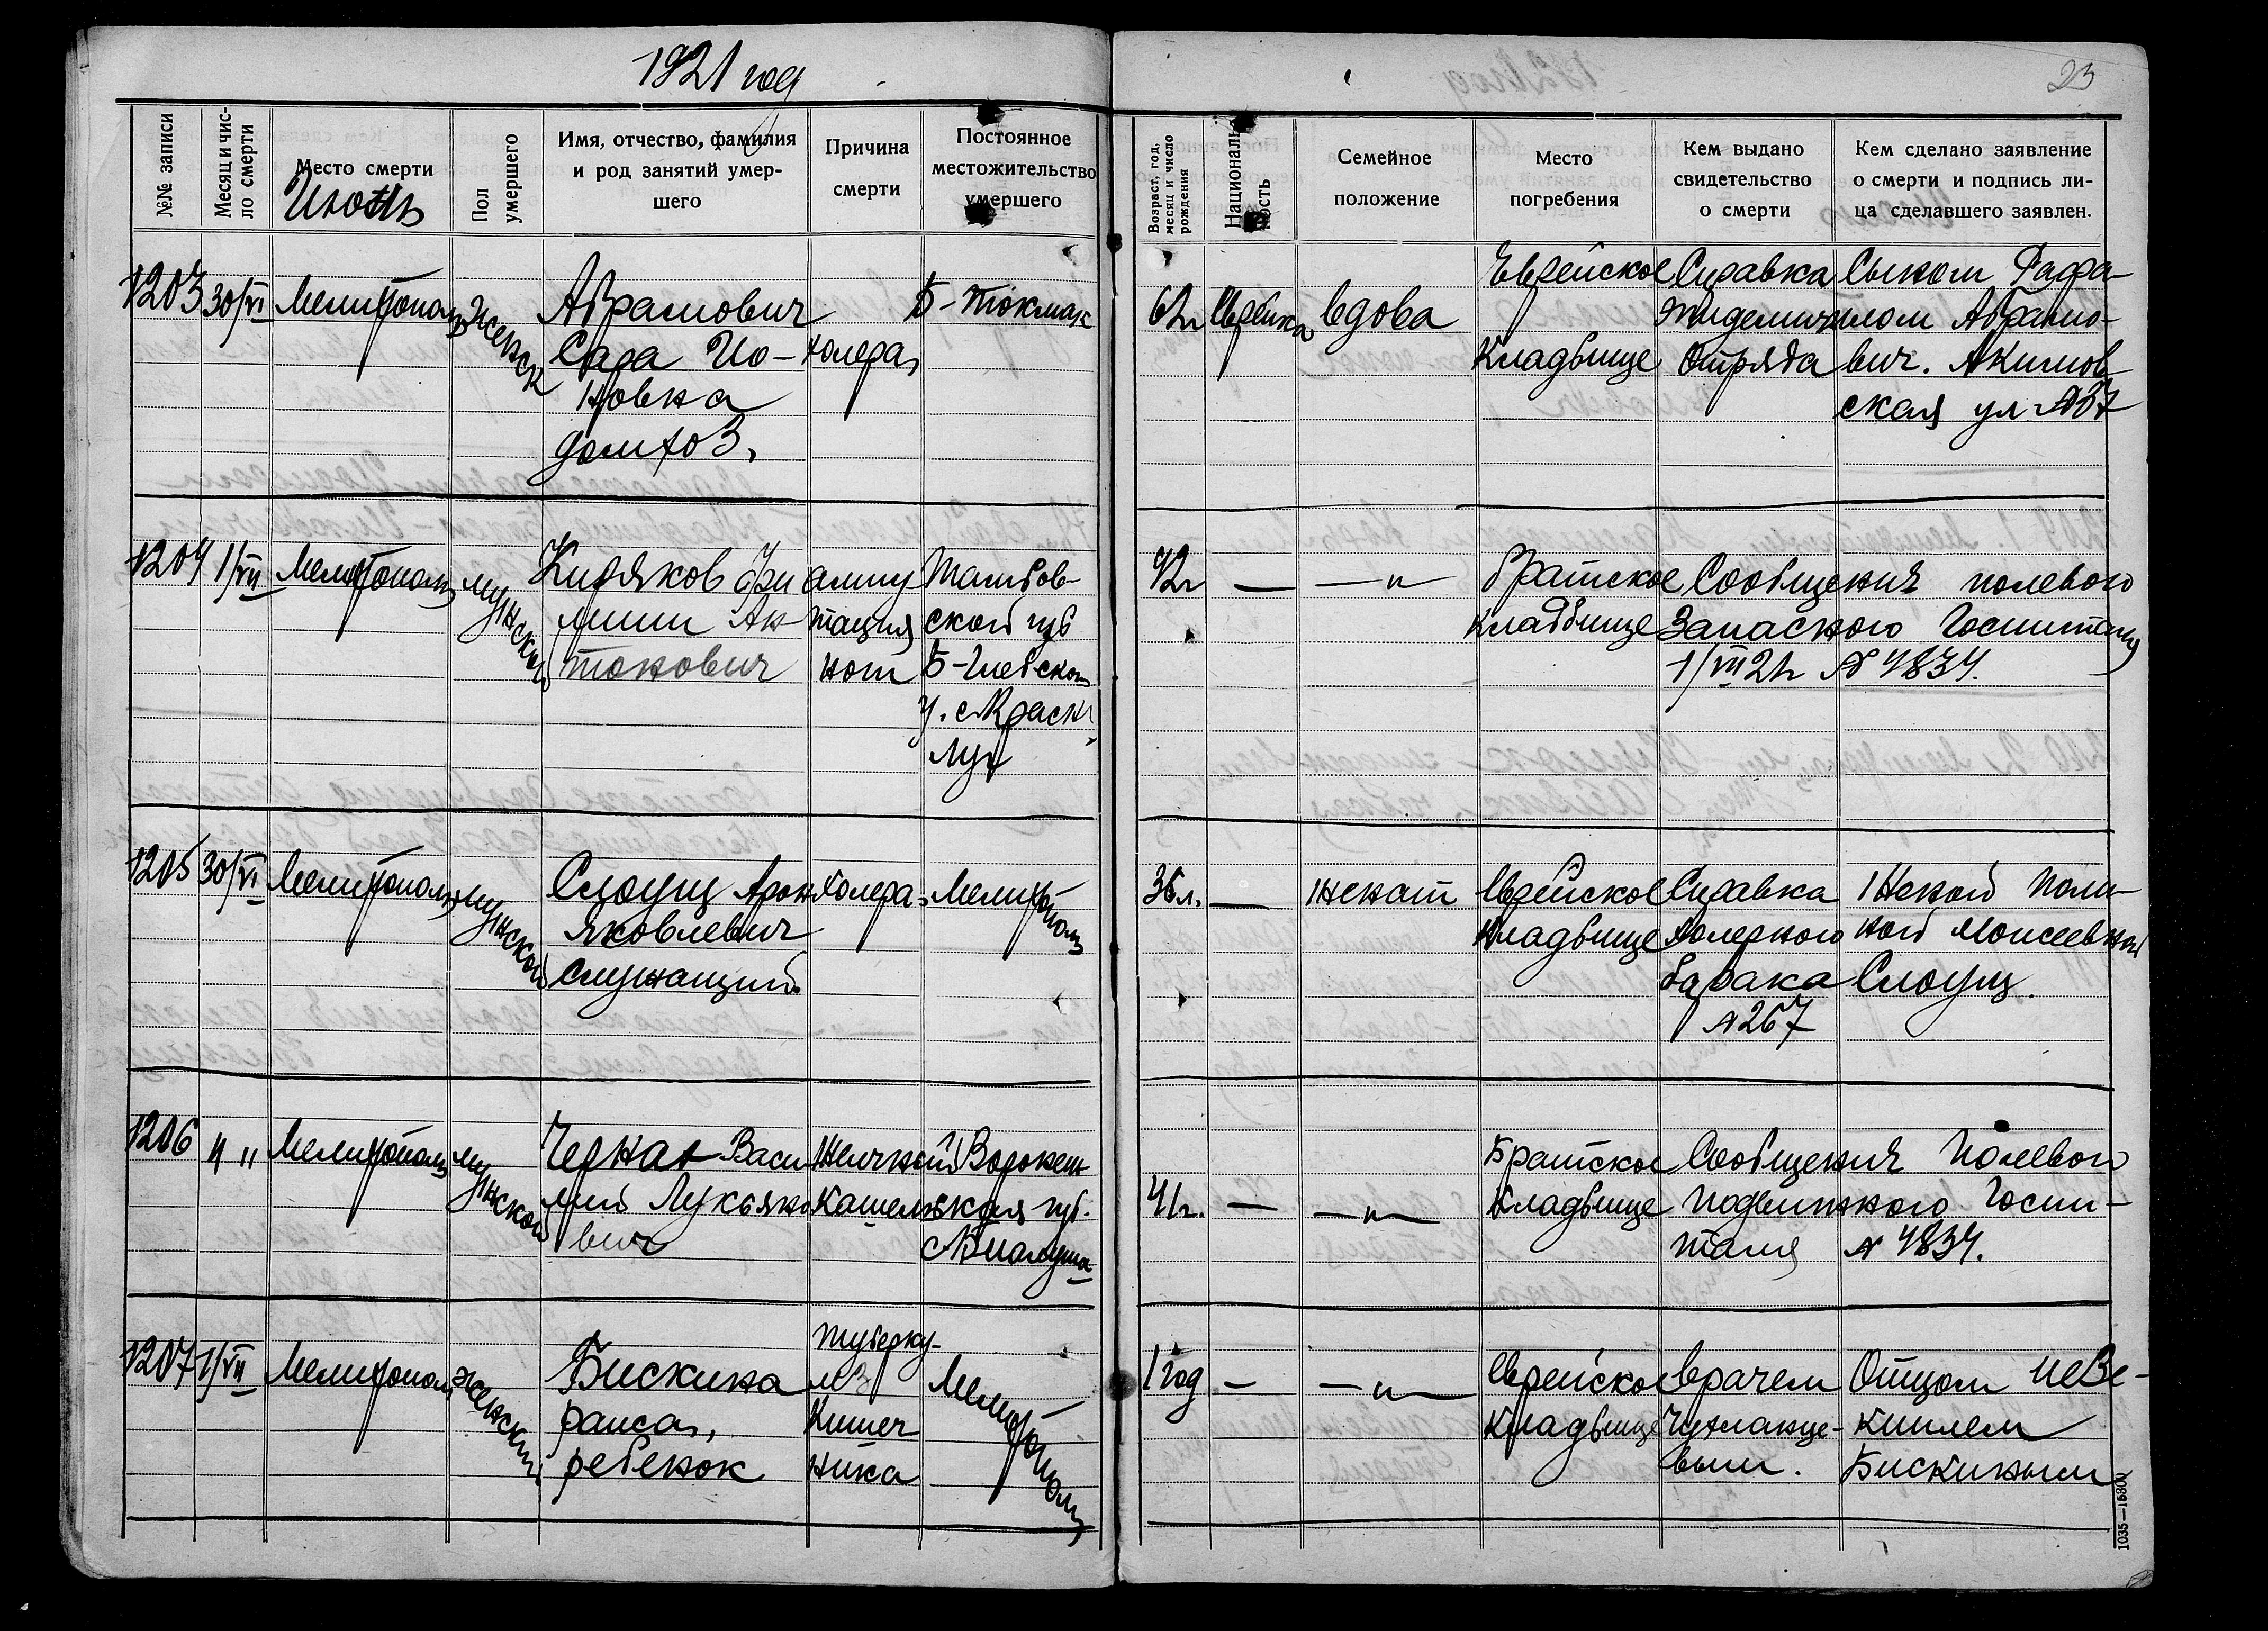 1921 год
23
№№ записи
Месяц и чис-
ло смерти
Место смерти
Июнь
Пол
умершего
Имя, отчество, фамилия
и род занятий умер-
шего
Причина
смерти
Постоянное
местожительство
умершего
Возраст, год,
месяц и число
рождения
Националь-
ность
Семейное
положение
Место
погребения
Кем выдано
свидетельство
о смерти
Кем сделано заявление
о смерти и подпись ли-
ца сделавшего заявлен.
1203
30/VI
Мелитополь
женск
Абрамович
Сара Ио-
новна
домхоз.
холера
Б-Токмак
62г
Еврейка
вдова
Еврейское
Кладбище
Справка
Эпидемич
отряда
Сыном Рафа-
илом Абрамо-
вич. Акимов-
ская ул №37
1204
1/VII
Мелитополь
мужской
Кидяков
Ан-
тонович
ампу
тация
ног
Тамбов-
ской губ
Б-Глебском
у. с Красн
Луг
42г
—
— " —
Братское
кладбище
Сообщения полевого
Запасного Госпиталя
1/VII 21г № 4834.
1205
30/VI
Мелитополь
мужской
Слоущ Арон
Яковлевич
служащий.
Холера
Мелитополь
36л.
—
женат
Еврейское
Кладбище
Справка
Холерного
барака
№ 267
Женой Поли-
ной Моисеевной
Слоущ.
1206
" "
Мелитополь
мужской
Васи-
лий Лукьяно
вич
Кашель
Воронеж
ская губ.
41г.
—
— " —
Братское
Кладбище
Сообщения Полевого
подвижного Госпи-
таля № 4834.
1207
1/VII
Мелитополь
женский
Бискина
раиса,
ребенок
туберку-
лз
Кишеч
ника
Мелитополь
1 год
—
— " —
Еврейское
Кладбище
Врачем
вым.
Отцом Иезе-
киилем
Бискиным
1035—15300